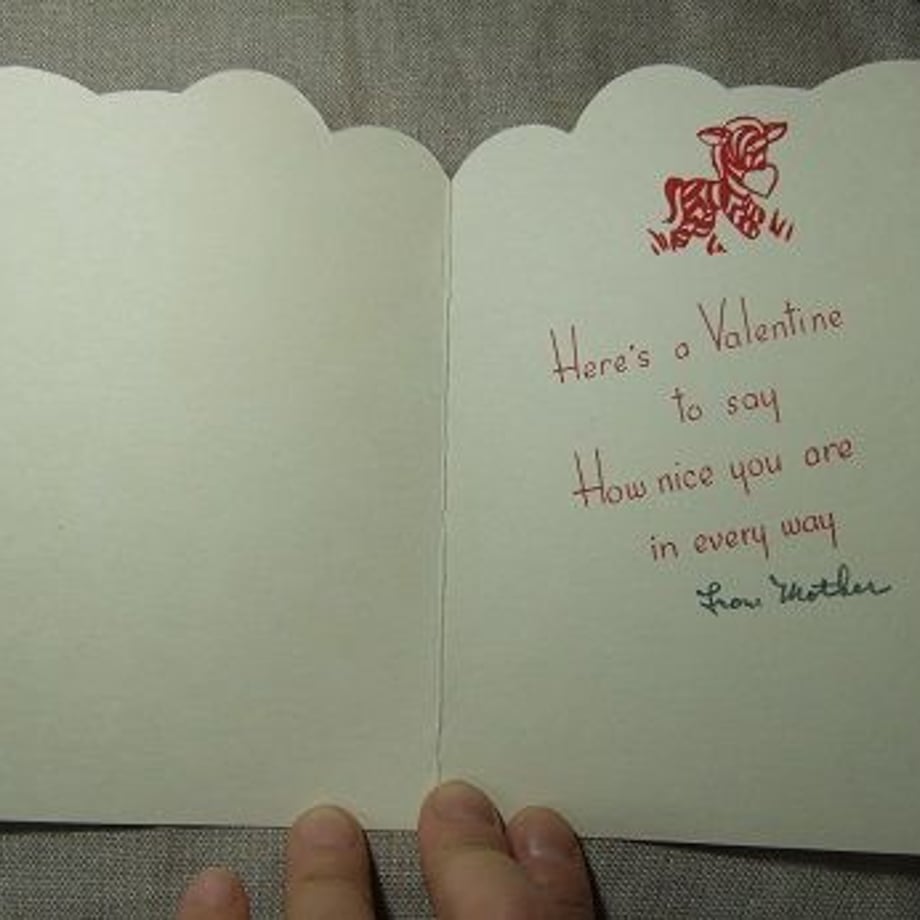 Here's a Valentine
to say
How nice you are
in every way
From Mother